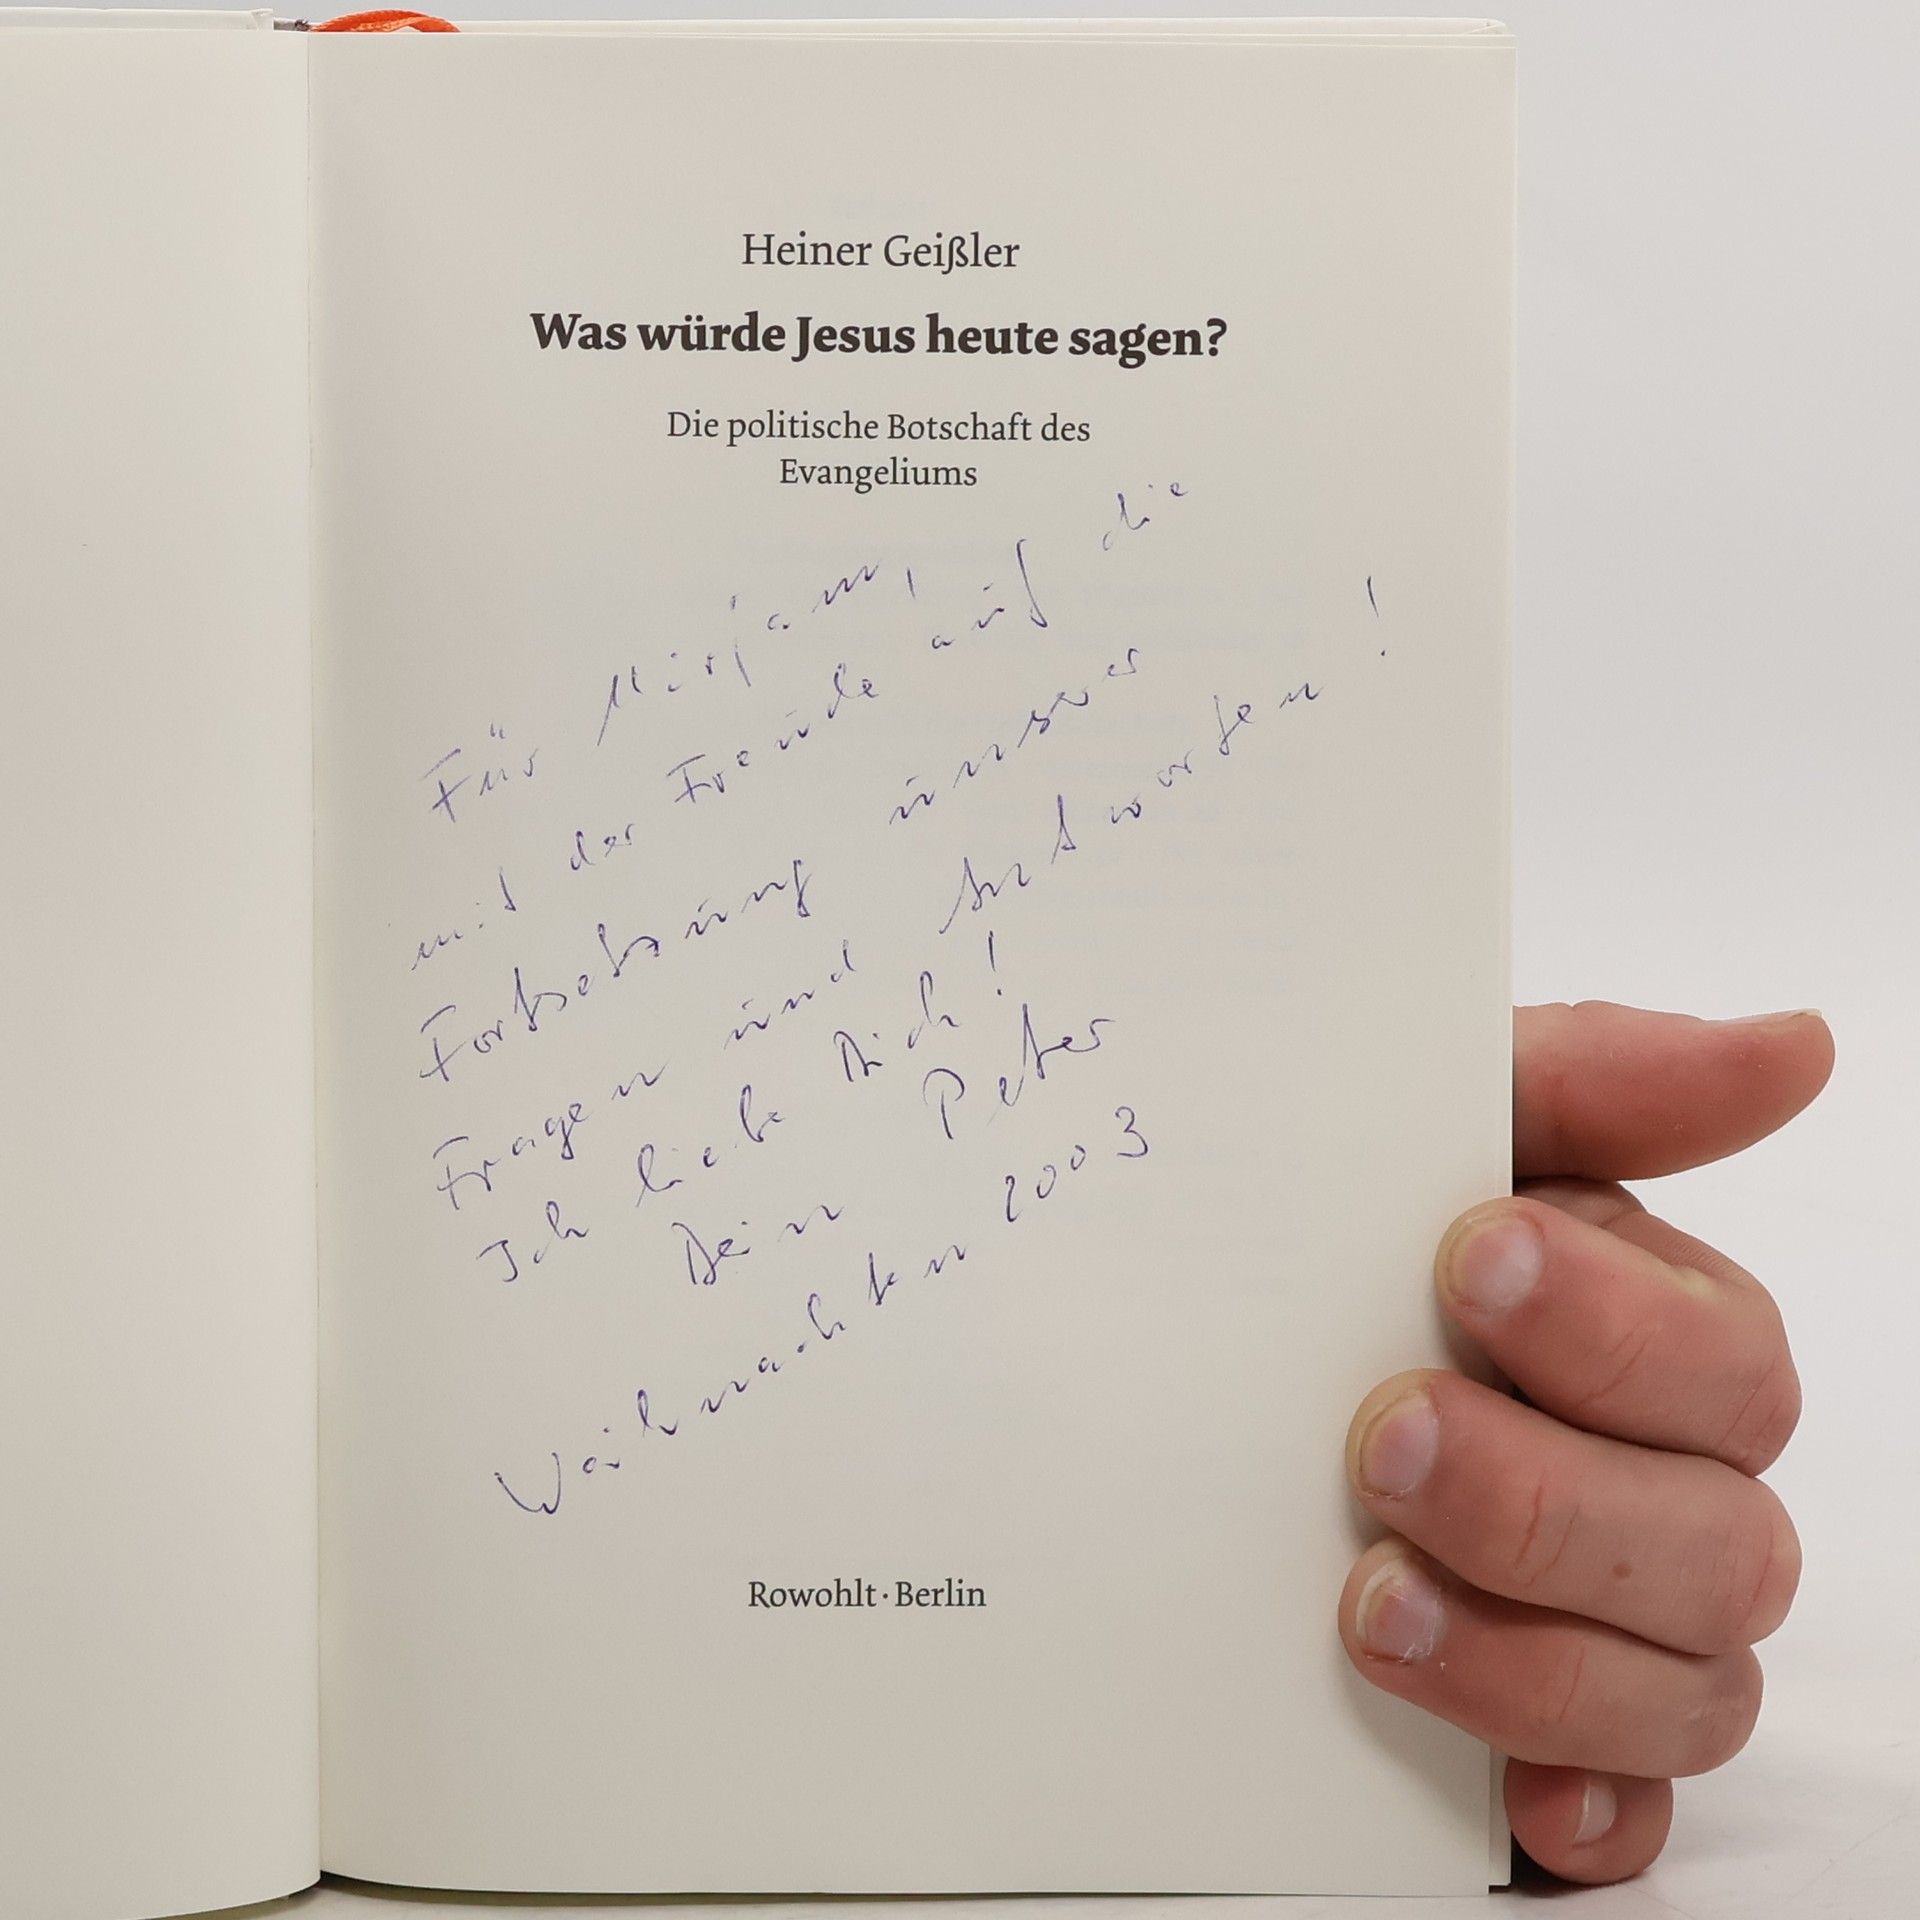 Heiner Geißler
Was würde Jesus heute sagen?
Die politische Botschaft des
Evangeliums
Für Mirjam,
mit der Freude auf die
Fortsetzung unserer
Fragen und Antworten!
Ich liebe Dich!
Dein Peter
Weihnachten 2003
Rowohlt · Berlin